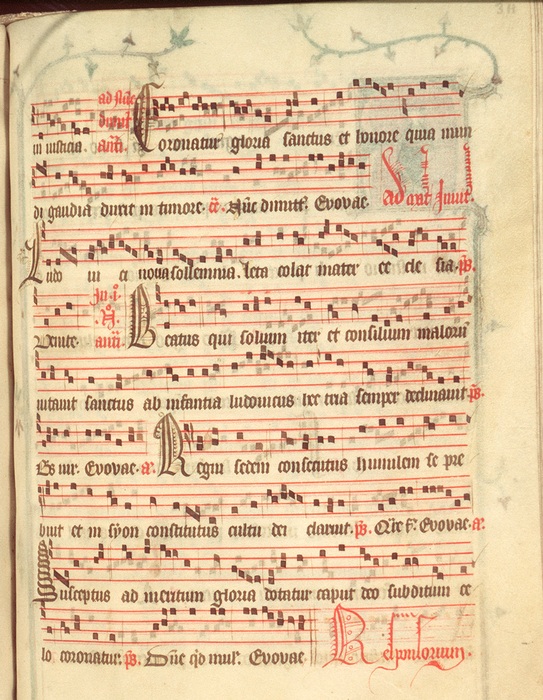 in iusticia. ad nūc dimit añ Coronatur gloria sanctus et honore quia mun
di gaudia duxit in timore. Nūc dimitt. Euouae. Ad mat Inuit.
Ludo ui ci noua sollemnia. leta colat mater ec cle sia. ps.
Venite. In .i. N. añ Beatus qui soluum iter et consilium maloru
uitauit sanctus ab infantia ludouicus hec tria semper declinauit ps.
Bs uir. Euouae. a. Regni sedem consecutus humilem se pre
buit et in syon constitutus cultu dei claruit. ps. Quare f. Euouae. a.
Susceptus ad meritum gloria dotatur caput deo subditum ce
lo coronatur. ps. Dn̄e qd mul. Euouae. Responsorium.